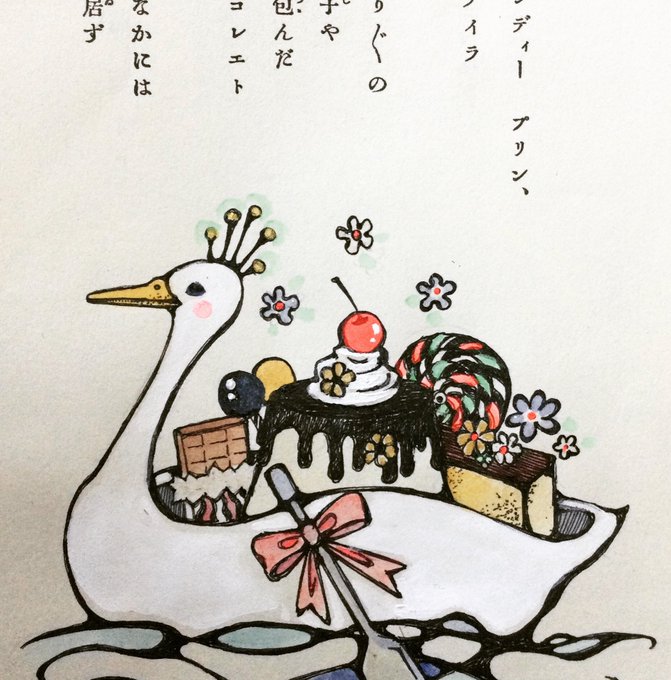 ンディー プリン、
イラ
り〴〵の
子や
包んだ
コレエト
なかには
居ず